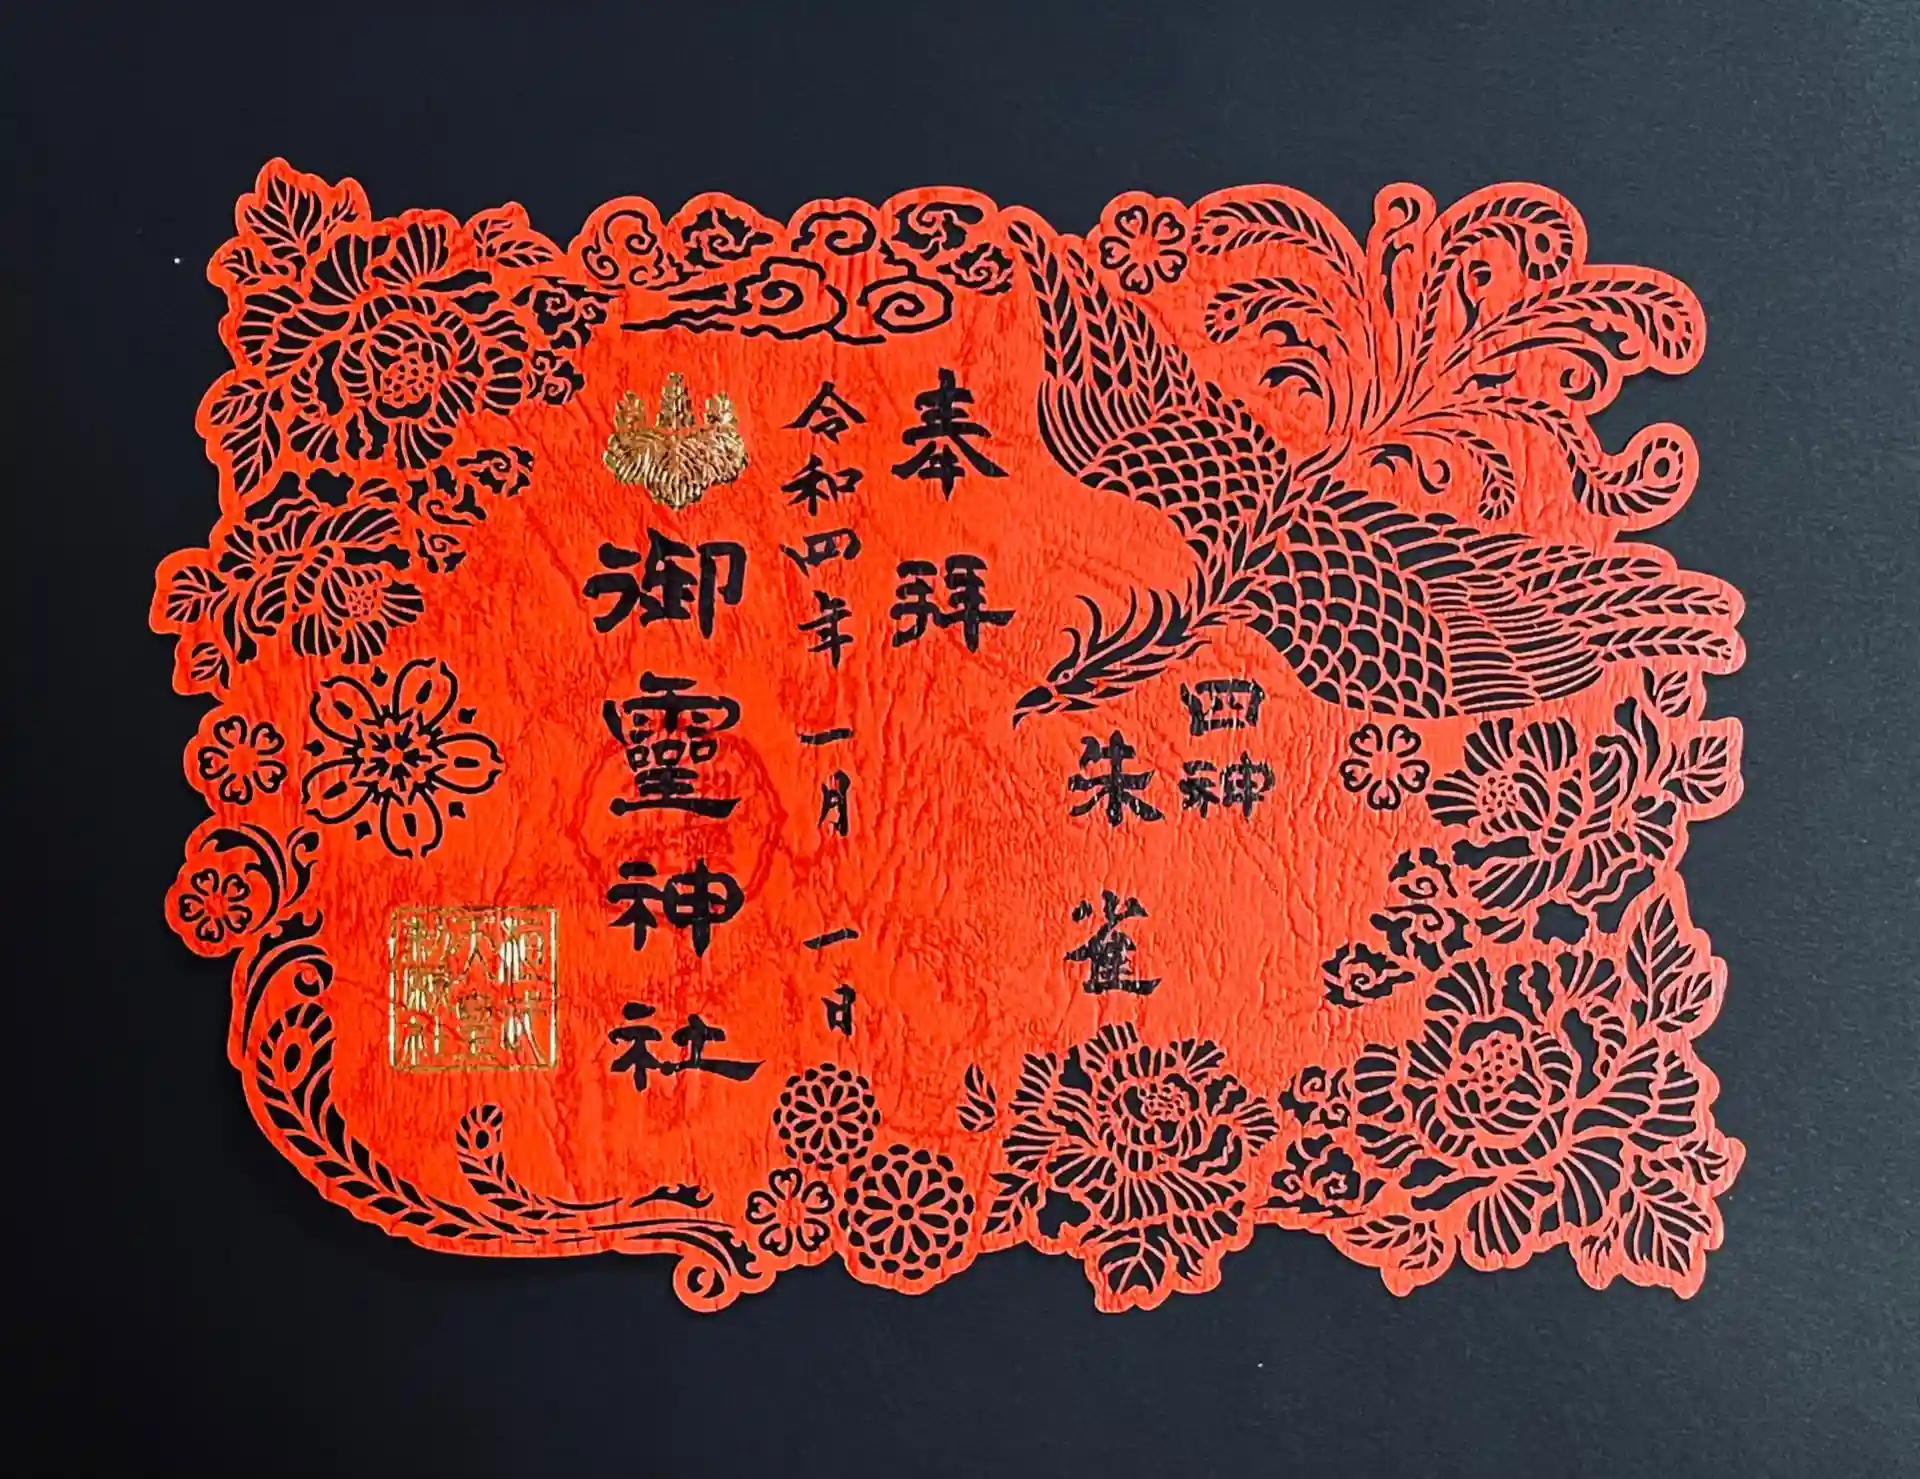 四神
朱雀
奉拜
令和四年一月一日
御靈神社
桓武
天皇
勅願社